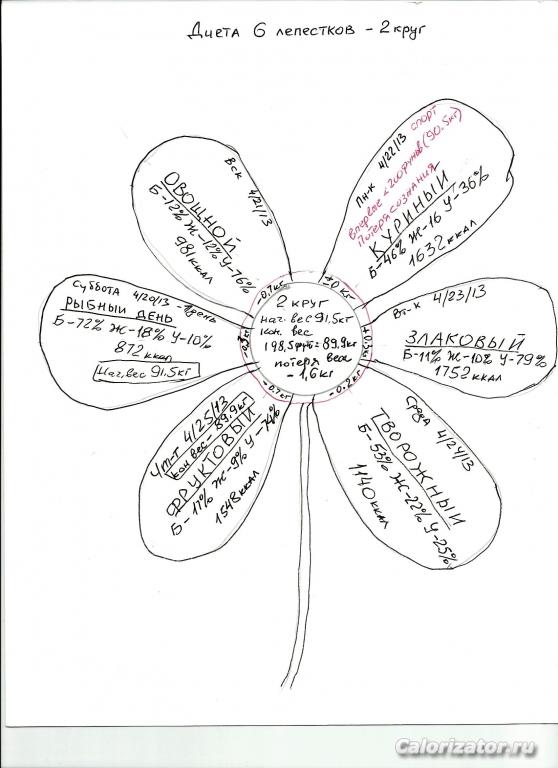 Диета 6 лепестков - 2 круг
Суббота 4/20/13 - 1 день
РЫБНЫЙ ДЕНЬ
Б-72% Ж-18% У-10%
872 ккал
Нач. вес 91.5кг
Вск 4/21/13
ОВОЩНОЙ
Б-12% Ж-12% У-76%
981 ккал
Пн-к 4/22/13 спорт
Впервые <200 фунтов (90.5кг)
Потеря сознания
КУРИНЫЙ
Б-46% Ж-16 У-36%
1632 ккал
Вт-к 4/23/13
ЗЛАКОВЫЙ
Б-11% Ж-10% У-79%
1752 ккал
Среда 4/24/13
ТВОРОЖНЫЙ
Б-53% Ж-22% У-25%
1140 ккал
Чт-г 4/25/13
кон вес - 89.9кг
ФРУКТОВЫЙ
Б-17% Ж-9% У-74%
1548 ккал
2 круг
нач. вес 91.5кг
кон. вес
198,5 фут = 89.9кг
потеря веса
- 1,6 кг
-0.7кг
+0 кг
Calorizator.ru